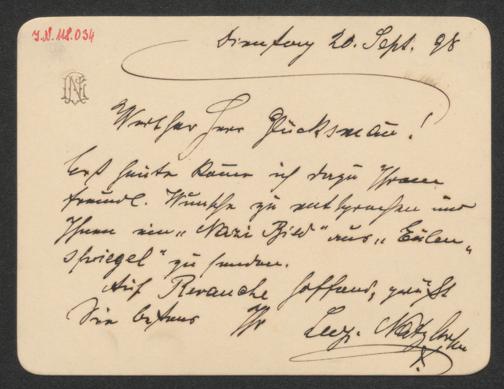 I.N. 118.034
Dienstag 20. Sept. 98
Werther Herr Glücksmann!
Erst heute komme ich dazu Ihrem
freundl. Wunsche zu entsprechen und
Ihnen ein „Nazi Bild“ aus „Eulen-
spiegel“ zu senden.
Auf Revanche hoffend, grüßt
Sie bestens Ihr
Leop. Natzler